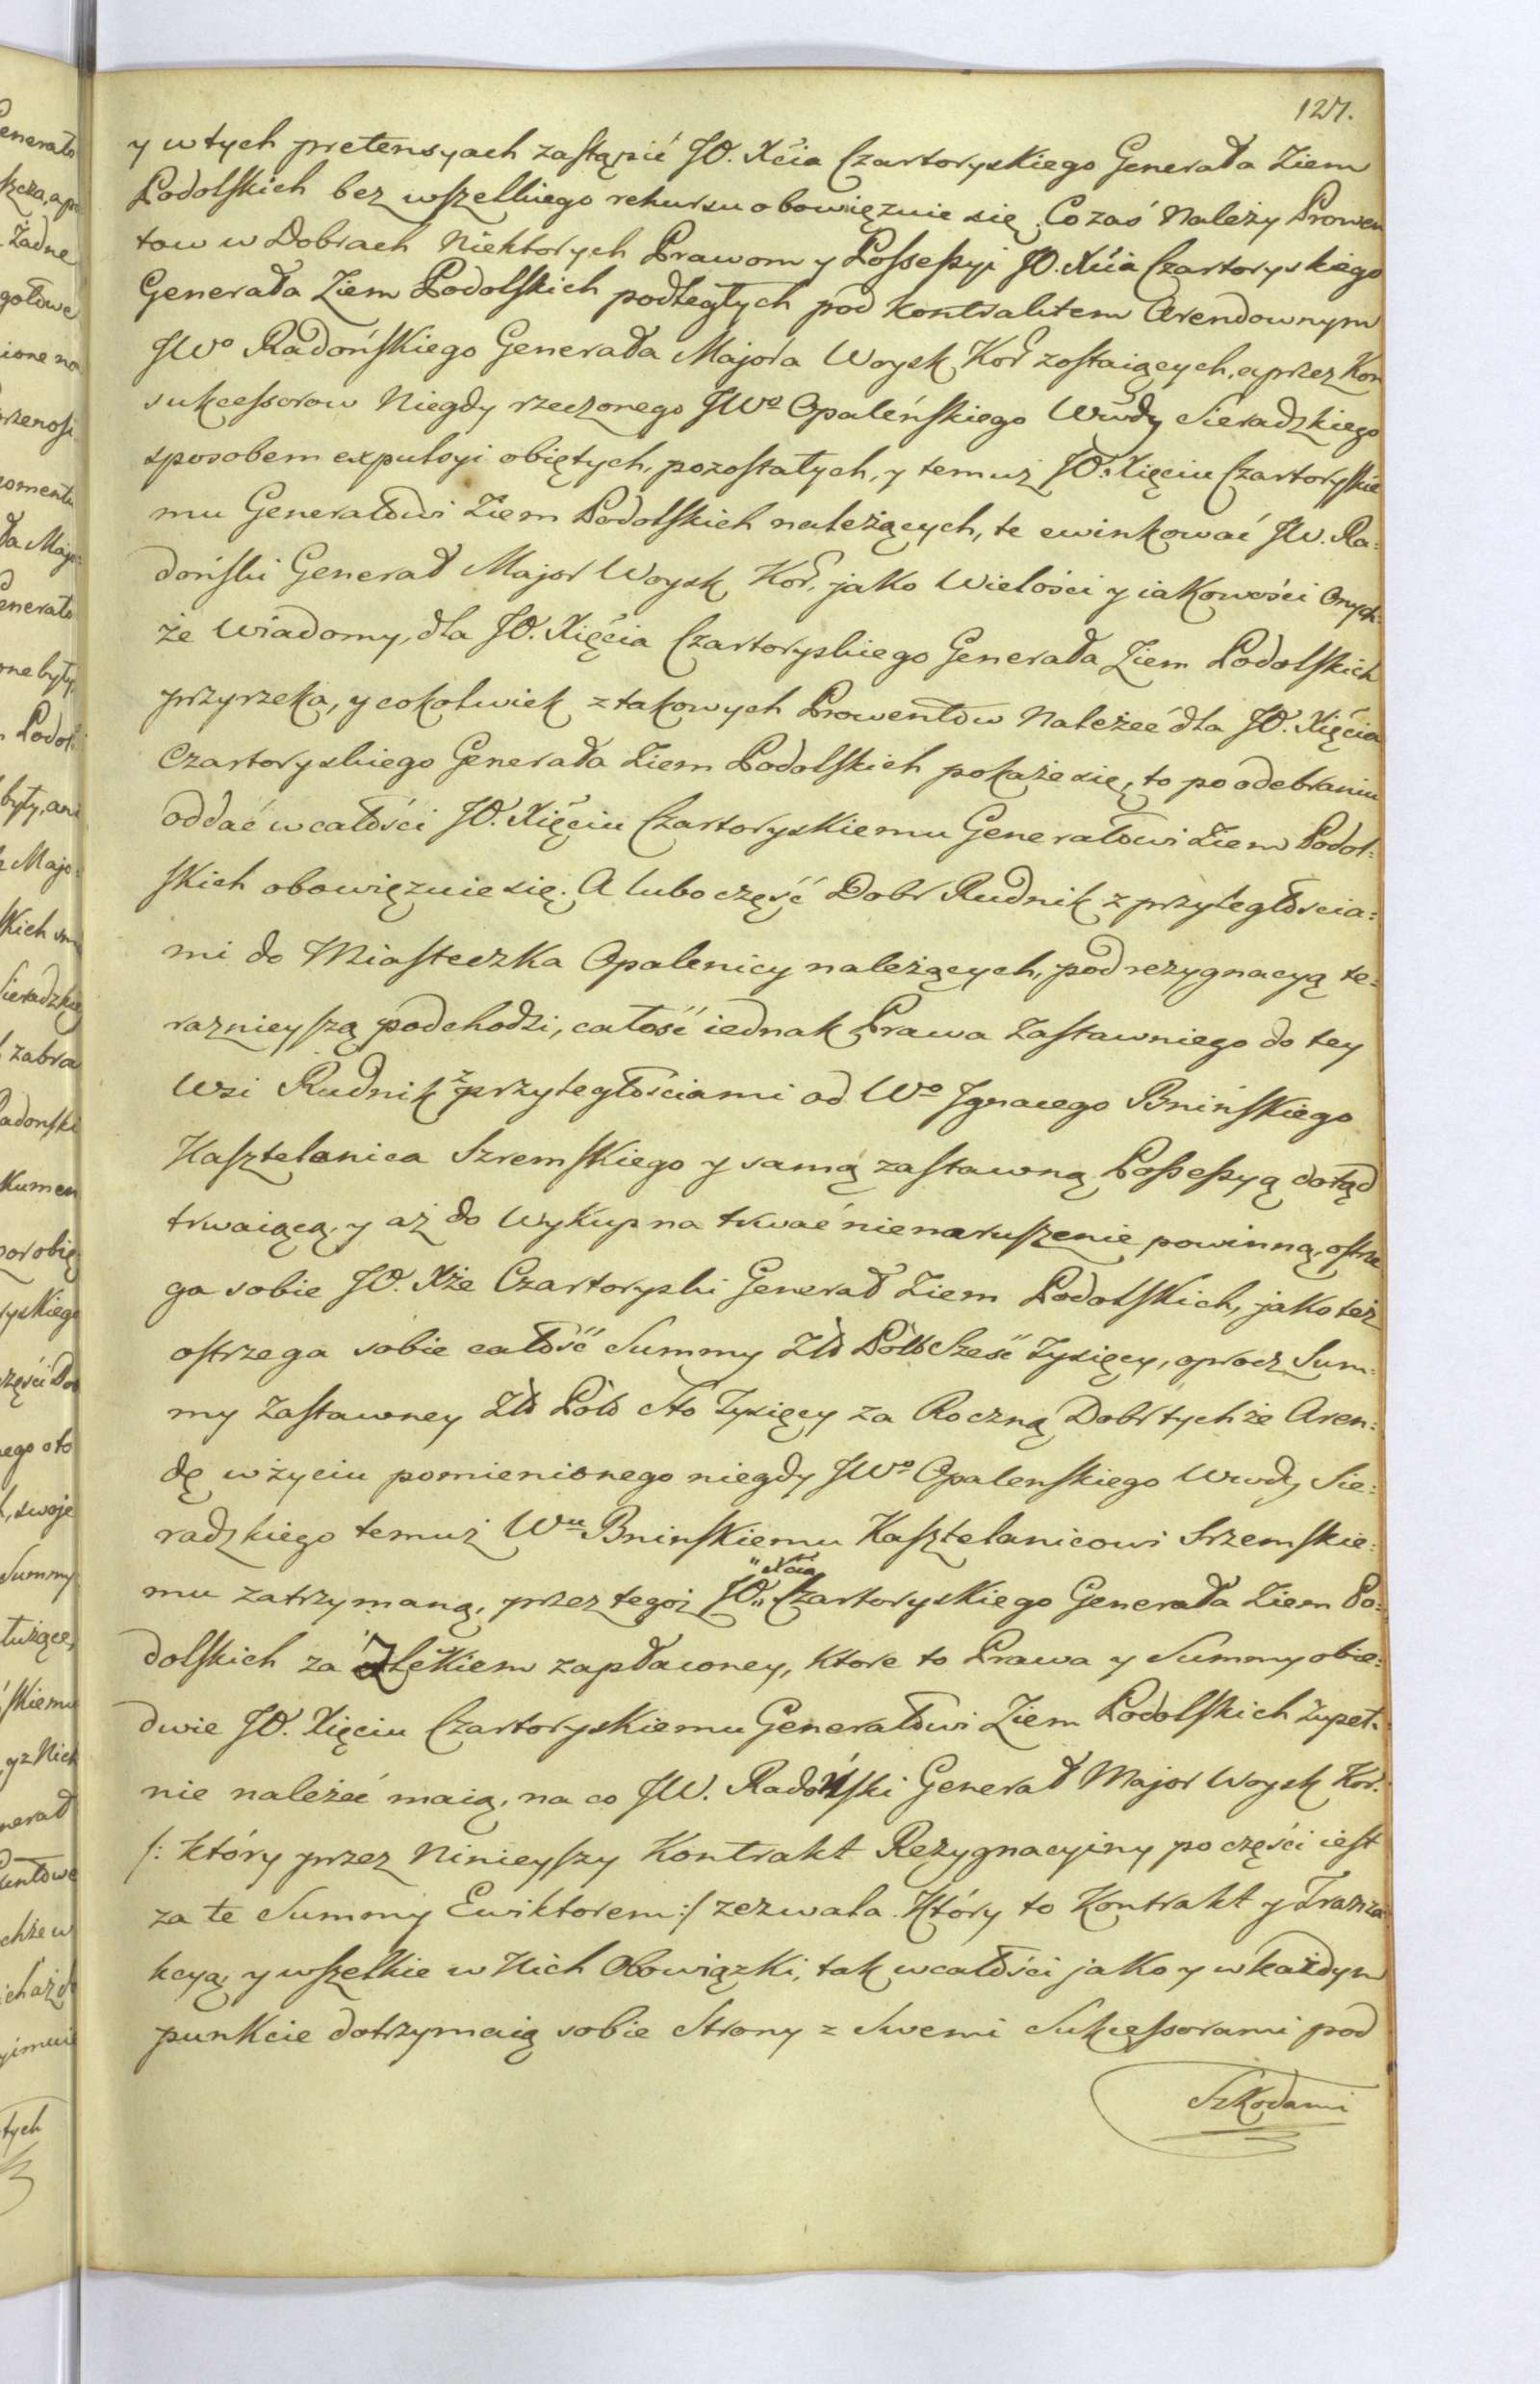 127.
y w tych pretensyach zastąpić JO. Xćia Czartoryskiego Generała Ziem
Podolskich bez wszelkiego rekursu obowięzuie się. Co zaś Należy Prowen
tow w Dobrach Niektorych Prawom y Possessyi JO. Xćia Czartoryskiego
Generała Ziem Podolskich podległych pod kontraktem Arendownym
JWo Radońskiego Generała Majora Woysk Kor zostaiących, a przez Kon
sukcessorow Niegdy rzeczonego JWo Opaleńskiego Wwdy Sieradzkiego
sposobem expulsyi obiętych, pozostałych, y temuż JO. Xięciu Czartoryskie
mu Generałowi Ziem Podolskich należących, te ewinkować JW. Ra:
doński Generał Major Woysk Kor. jako Wielości y iakowości Onych:
że Wiadomy, dla JO. Xięcia Czartoryskiego Generała Ziem Podolskich
przyrzeka, y cokolwiek z takowych Prowentow Należeć dla JO. Xięcia
Czartoryskiego Generała Ziem Podolskich pokaże się, to po odebraniu
oddać w całości JO. Xięciu Czartoryskiemu Generałowi Ziem Podol:
skich obowięzuie się. A lubo część Dobr Rudnik z przyległościa:
mi do Miasteczka Opalenicy należących, pod rezygnacyą te:
raznieyszą podchodzi, całość iednak Prawa Zastawniego do tey
Wsi Rudnik z przyległościami od Wo Jgnacego Bnińskiego
Kasztelanica Szremskiego y samą zastawną Possessyą dotąd
trwaiącą, y aż do Wykupna trwać nienaruszenie powinną, ostrze
ga sobie JO. Xże Czartoryski Generał Ziem Podolskich, jako też
ostrzega sobie całość Summy Zło Polo Sześć Tysięcy, oprocz Sum:
my Zastawney Zło Polo Sto Tysięcy za Roczną Dobr tychże Aren:
dę w życiu pomienionego niegdy JWo Opalenskiego Wwdy Sie:
radzkiego temuż Wu Bninskiemu Kasztelanicowi Srzemskie:
mu zatrzymaną, przez tegoż JO. "Xcia Czartoryskiego Generała Ziem Po:
dolskich za Zlękiem zapłaconey, Ktore to Prawa y Summy obie:
dwie JO. Xięciu Czartoryskiemu Generałowi Ziem Podolskich Zupeł:
nie należeć maią, na co JW. Radoński Generał Major Woysk Kor.
/: który przez Ninieyszy Kontrakt Rezygnacyiny po części iest
za te Summy Ewiktorem :/ zezwala. Który to Kontrakt y Tranza
kcyą, y wszelkie w Nich Obowiązki, tak w całości jako y w każdym
punkcie dotrzymaią sobie Strony z Swemi Sukcessorami pod
Szkodami